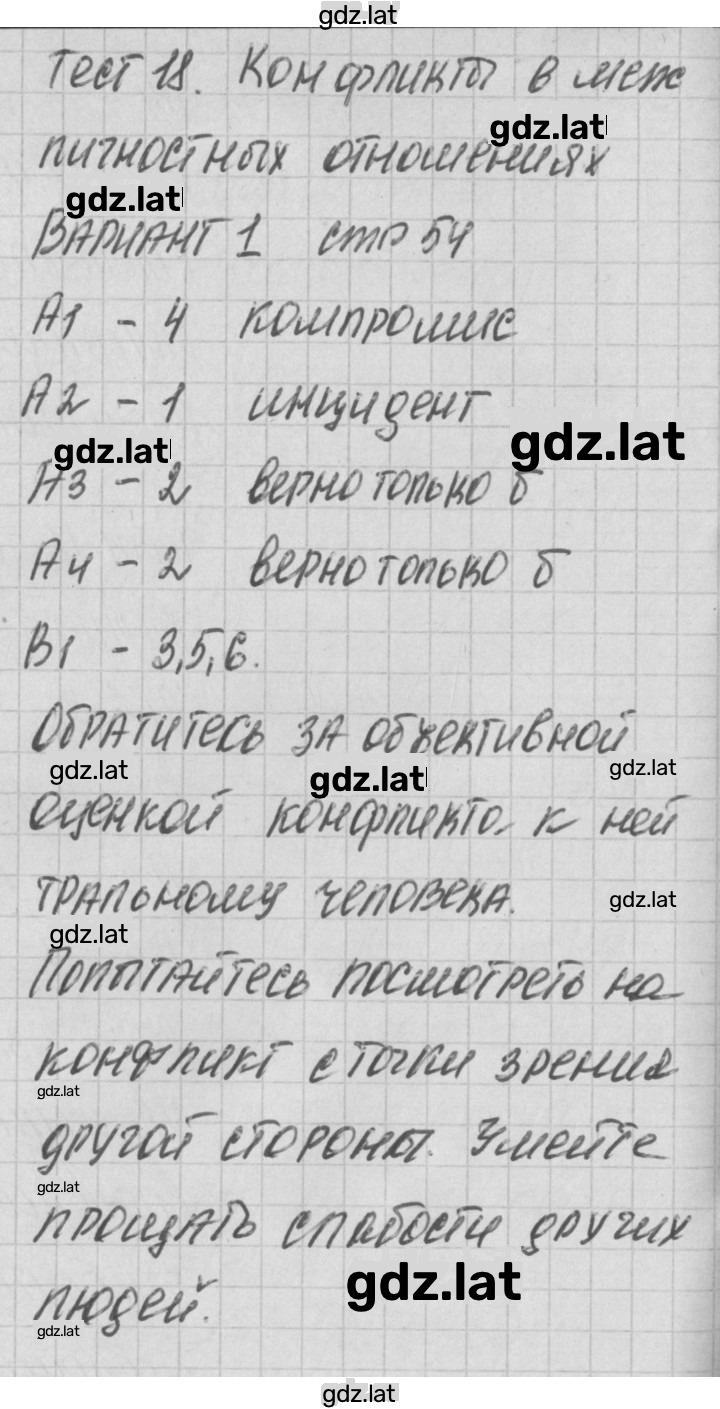 gdz.lat
Тест 18. Конфликты в меж
личностных отношениях
gdz.lat
gdz.lat
Вариант 1 стр 54
А1 - 4 компромис
А2 - 1 инцидент
gdz.lat
gdz.lat
А3 - 2 верно только б
А4 - 2 верно только б
В1 - 3,5,6.
Обратитесь за объективной
gdz.lat
gdz.lat
gdz.lat
оценкой конфликта к ней
тральному человека.
gdz.lat
gdz.lat
Попытайтесь посмотреть на
конфликт с точки зрения
gdz.lat
другой стороны. Умейте
gdz.lat
прощать слабости других
людей.
gdz.lat
gdz.lat
gdz.lat